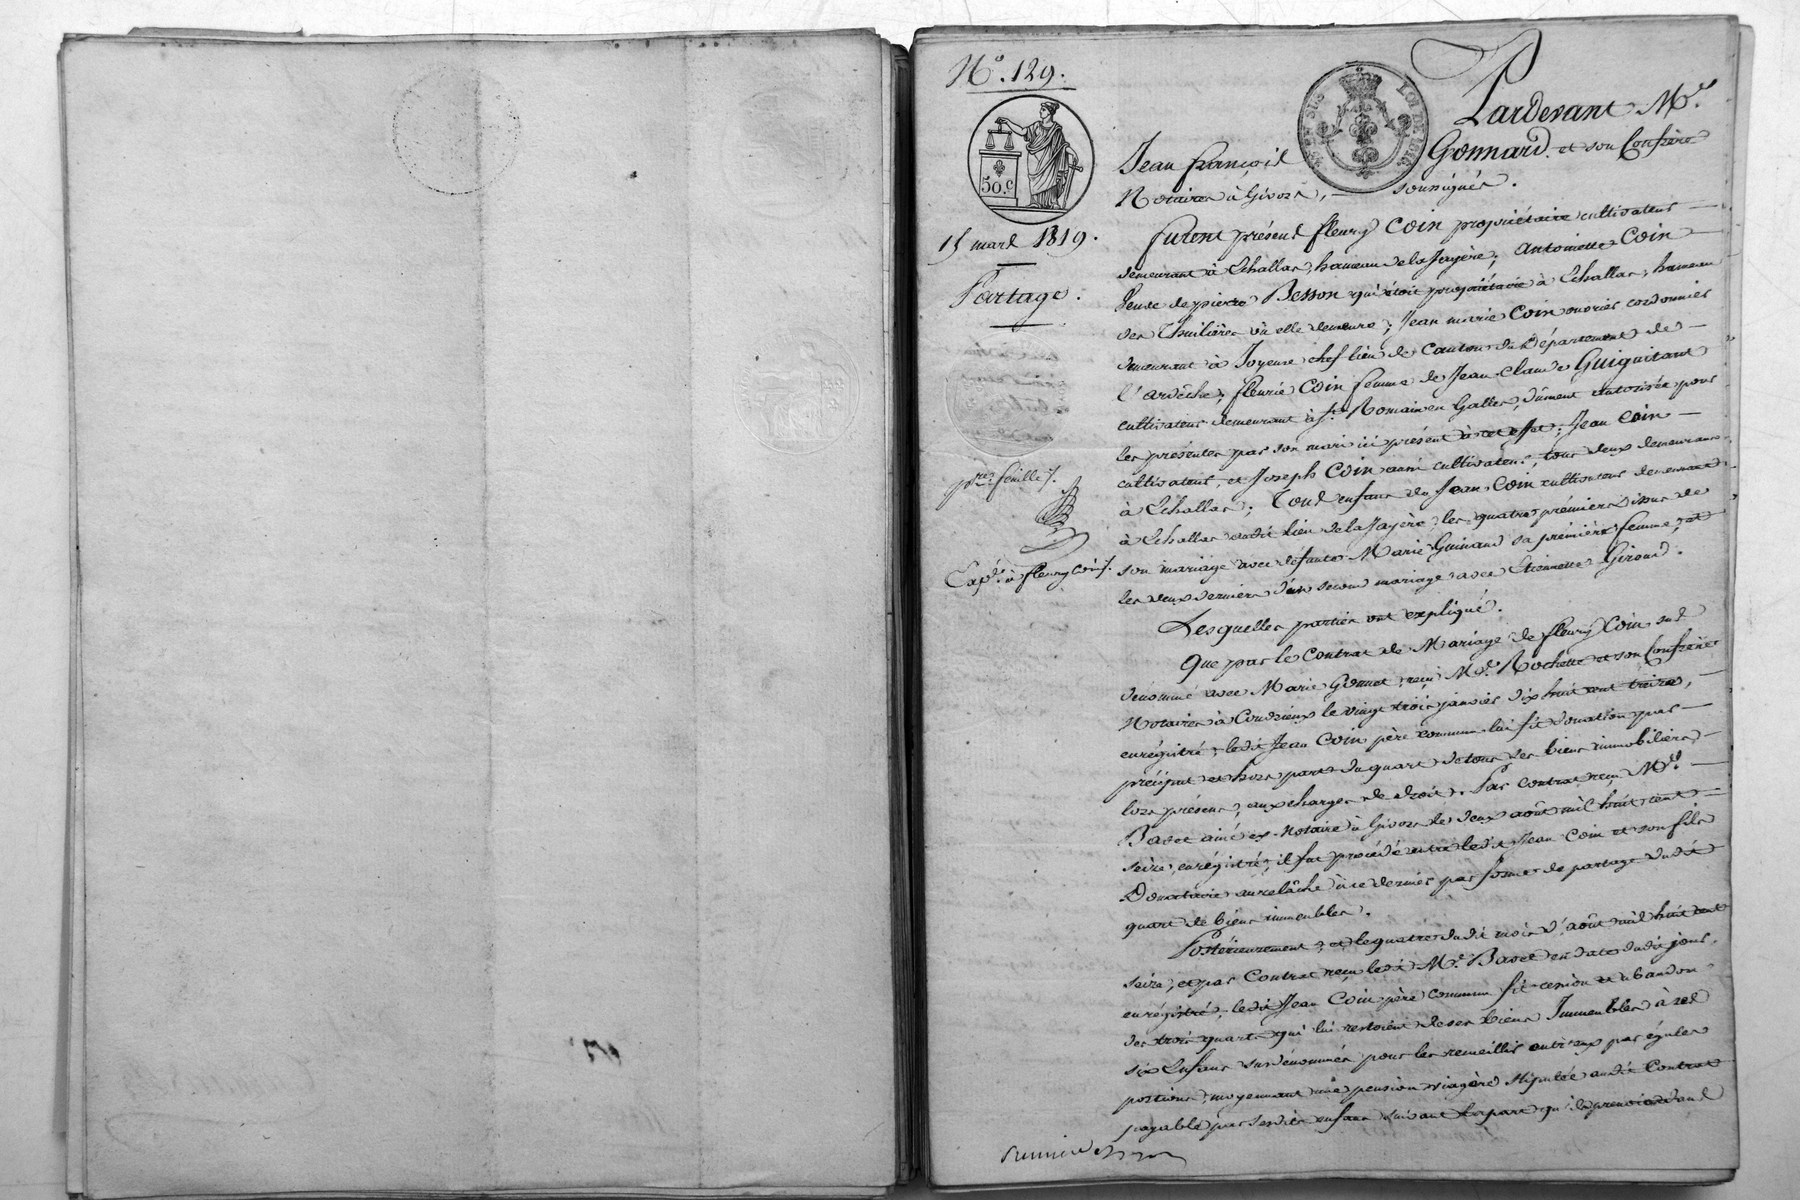 N.º 129.
50.c
15 mars 1819.
Partage.
p.re feuille /.
Exp.e à fleury Coin /.
LOI DE 1816
Pardevant M.e
Jean françois Gonnard. et son Confrère
Notaires à Givors, soussignés.
furent présens fleury Coin propriétaire cultivateur
demeurant à Echallas, hameau de la Jayère; Antoinette Coin
Veuve de pierre Besson qui étoit propriétaire à Echallas, hameau
des Thuilières où elle demeure; Jean marie Coin ouvrier cordonnier
demeurant à Joyeuse chef lieu de Canton du Département de
l'ardèche; fleurie Coin femme de Jean Claude Guiguitant
cultivateur demeurant à St. Romain en Galles, dûment autorisée pour
les présentes par son mari ici présent à cet effet; Jean Coin
cultivateur, et Joseph Coin aussi cultivateur, tous deux demeurans
à Echallas; Tous enfans de Jean Coin cultivateur demeurant
à Echallas audit lieu de la Jayère; les quatre premiers issus de
son mariage avec défunte Marie Guinand sa première femme, et
les deux derniers d'un second mariage avec Etiennette Giroud.
Lesquelles parties ont expliqué.
Que par le Contrat de Mariage de fleury Coin sus
dénommé avec Marie Gonnet, reçu M.e Rochette et son Confrère
Notaires à Condrieux le vingt trois janvier dix huit cent treize,
enrégistré, ledit Jean Coin père commun lui fit donation par
préciput et hors part du quart de tous ses biens immobiliers
lors présens, aux charges de droit. Par contrat reçu M.e
Bavet ainé ex-notaire à Givors le deux août mil huit cent
seize, enrégistré, il fut procédé entre ledit Jean Coin et son fils
Donataire au relâche à ce dernier par forme de partage dudit
quart de biens immeubles.
Postérieurement, et le quatre dudit mois d'août mil huit cent
seize, et par Contrat reçu ledit M.e Bavet en date dudit jour,
enrégistré, ledit Jean Coin père commun fit cession et abandon
des trois quarts qui lui restoient de ses biens Immeubles à ses
six Enfans susdénommés pour les recueillir entr'eux par égales
portions, moyennant une pension viagère stipulée audit Contrat
payable par sesdits enfans suivant la part qu'ils prenoient